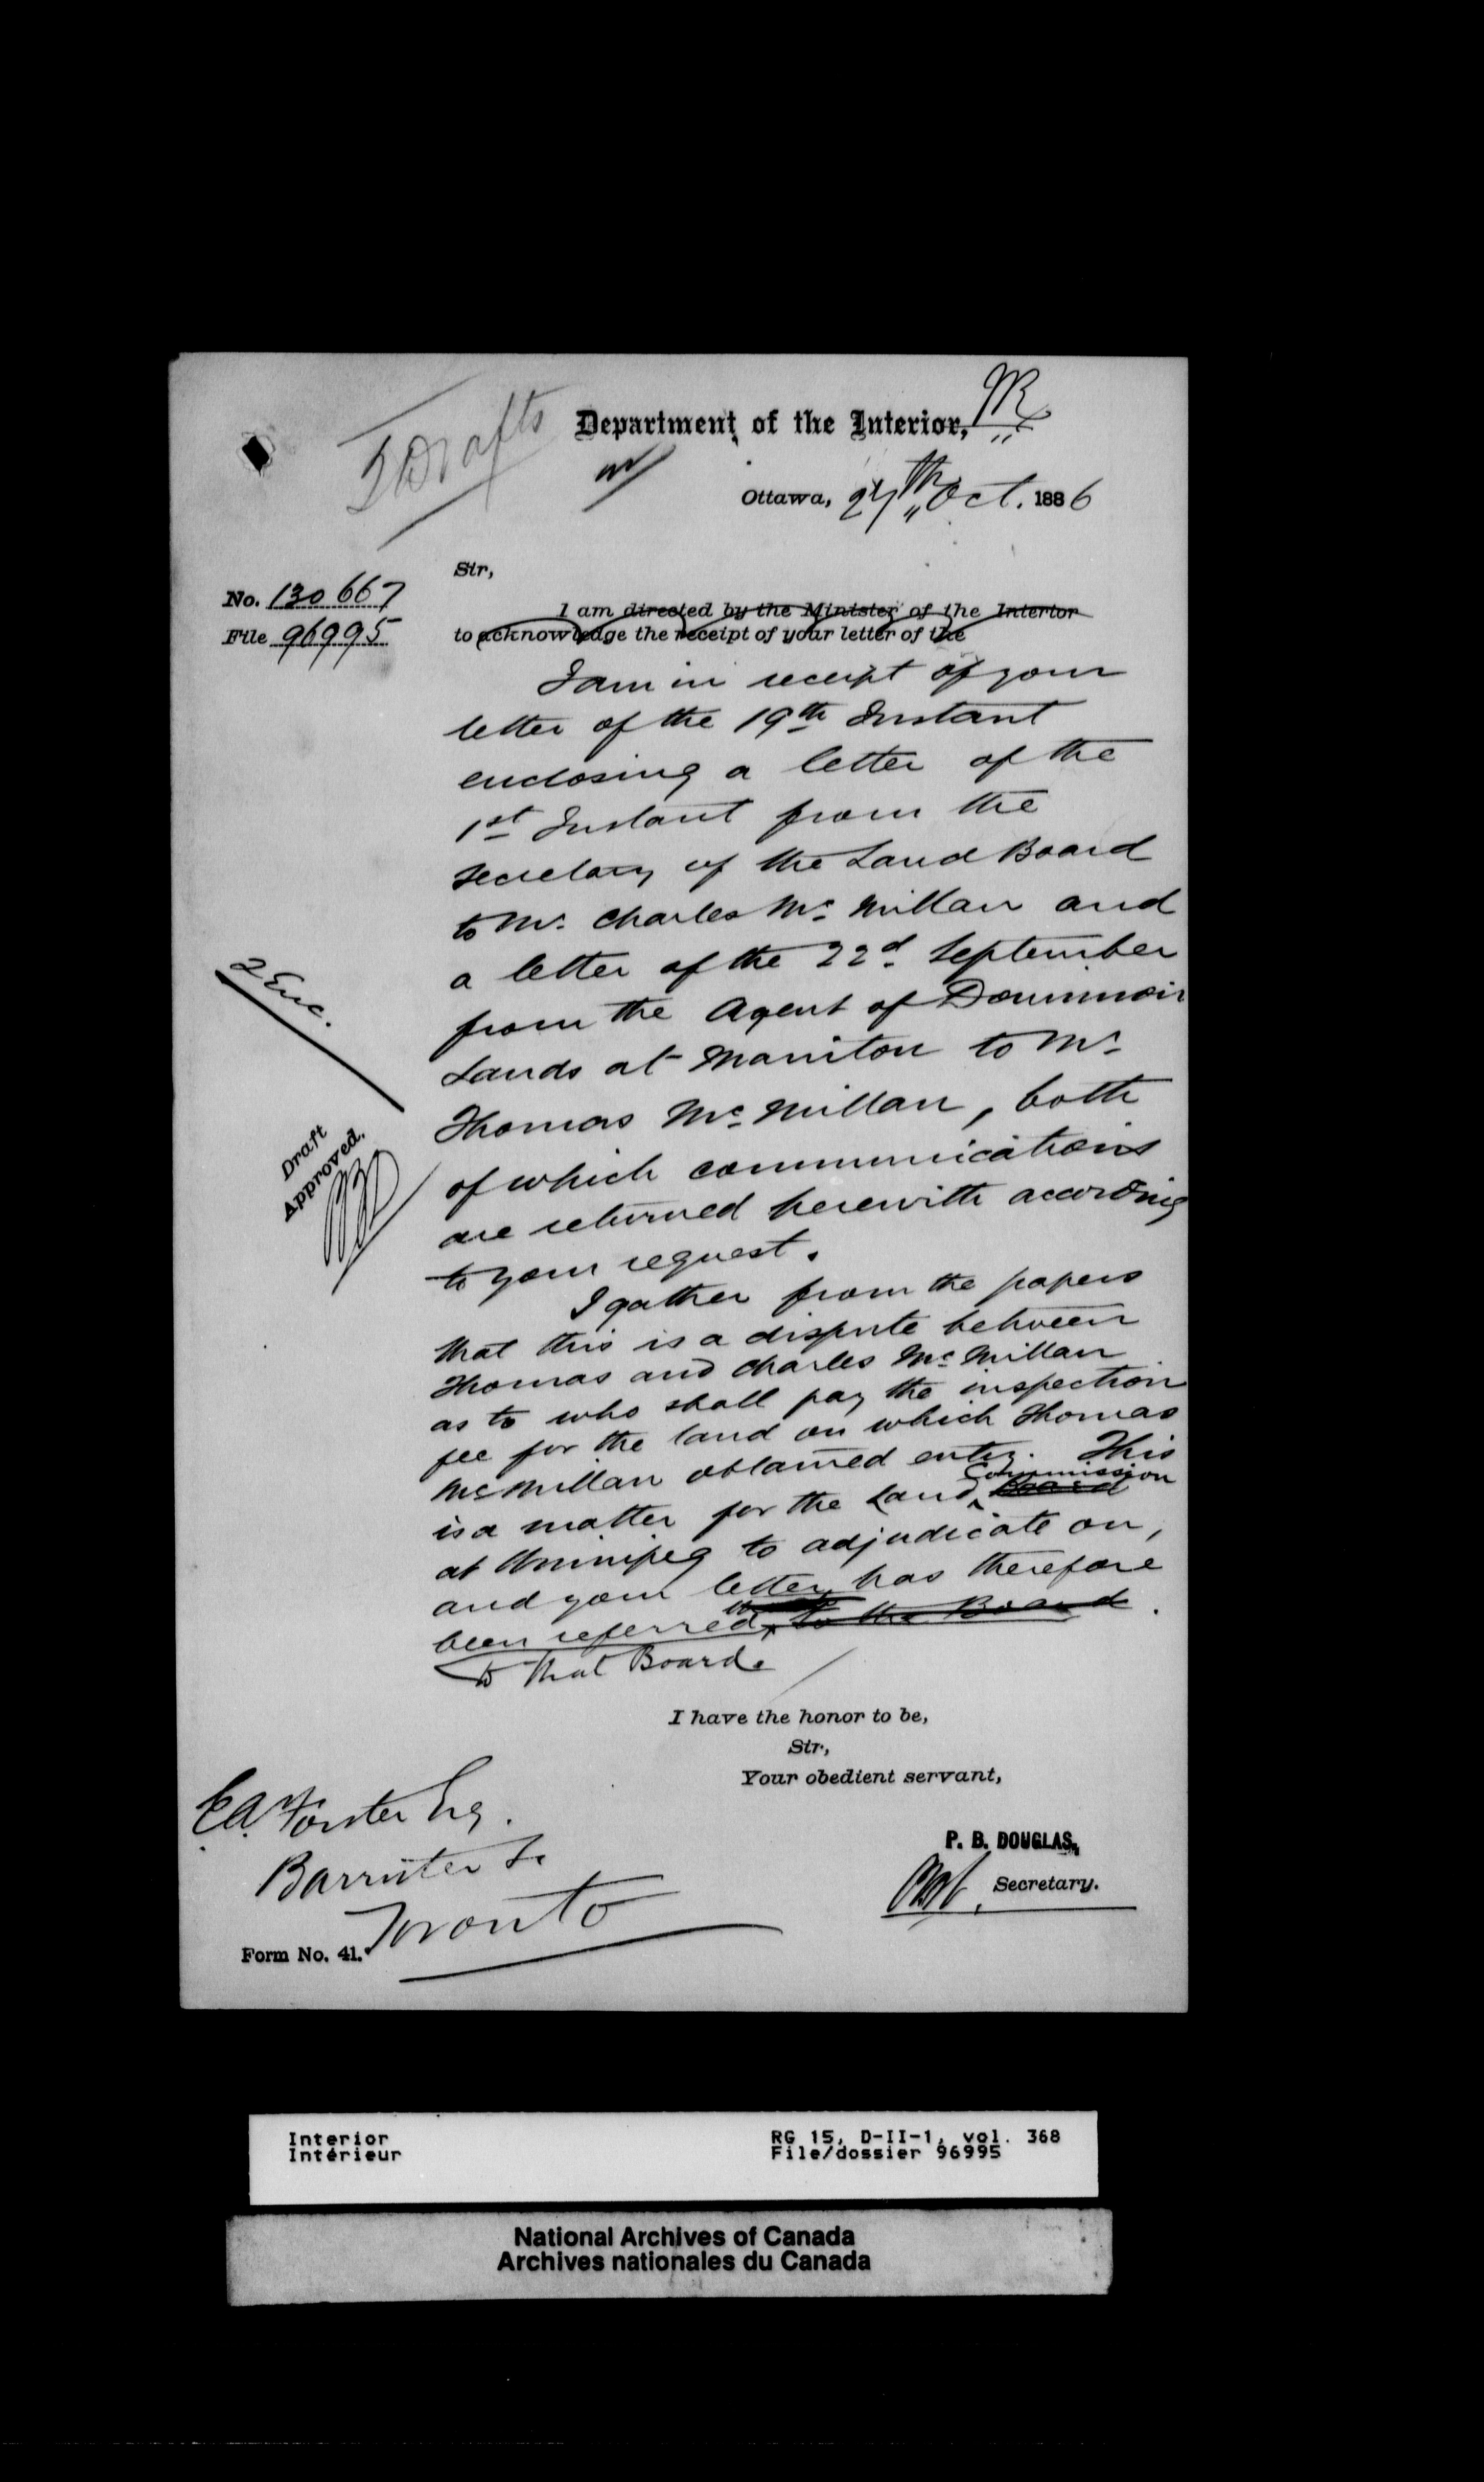 2 Drafts
Department of the Interior,
Ottawa, 27th Oct. 1886
Sir,
No. 130 667
File 96995
I am directed by the Minister of the Interior
to acknowledge the receipt of your letter of the
I am in receipt of your
letter of the 19th Instant
enclosing a letter of the
1st Instant from the
Secretary of the Land Board
to Mr. Charles Mc Millan and
a letter of the 22d September
from the Agent of Dominion
Lands at Manitou to Mr
Thomas Mc Millan, both
of which communications
are returned herewith according
to your request.
2 Enc.
Draft
Approved.
I gather from the papers
that this is a dispute between
Thomas and Charles Mc Millan
as to who shall pay the inspection
fee for the land on which Thomas
McMillan obtained entry. This
is a matter for the Land Commission Board
at Winnipeg to adjudicate on,
and your letter has therefore
been referred to the Board.
to that Board.
I have the honor to be,
Sir,
Your obedient servant,
E.A. Forster Esq.
Barrister &c
Toronto
P. B. DOUGLAS,
Secretary.
Form No. 41.
Interior
Intérieur
RG 15, D-II-1, vol. 368
File/dossier 96995
National Archives of Canada
Archives nationales du Canada